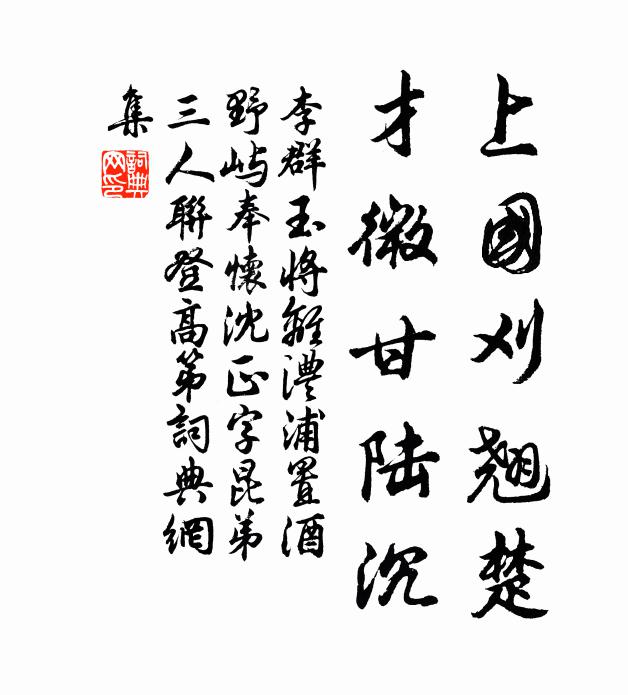 上國刈翹楚
才微甘陆沉
李群玉將離澧浦置酒
野屿奉懷沈正字昆弟
三人聯登高第詞典網
集
詞典
网印